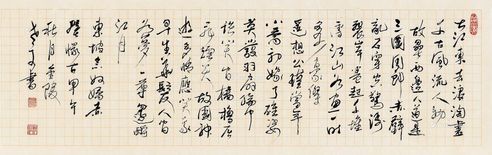 大江東去浪淘盡
千古風流人物
故壘西邊人道是
三國周郎赤壁
亂石穿空驚濤
裂岸卷起千堆
雪江山如畫一時
多少豪傑
遙想公瑾當年
小喬初嫁了雄姿
英發羽扇綸巾
談笑間檣櫓灰
飛煙滅故國神
遊多情應笑我
早生華髮人間
如夢一尊還酹
江月
東坡念奴嬌赤
壁懷古甲午
秋月金陵
書